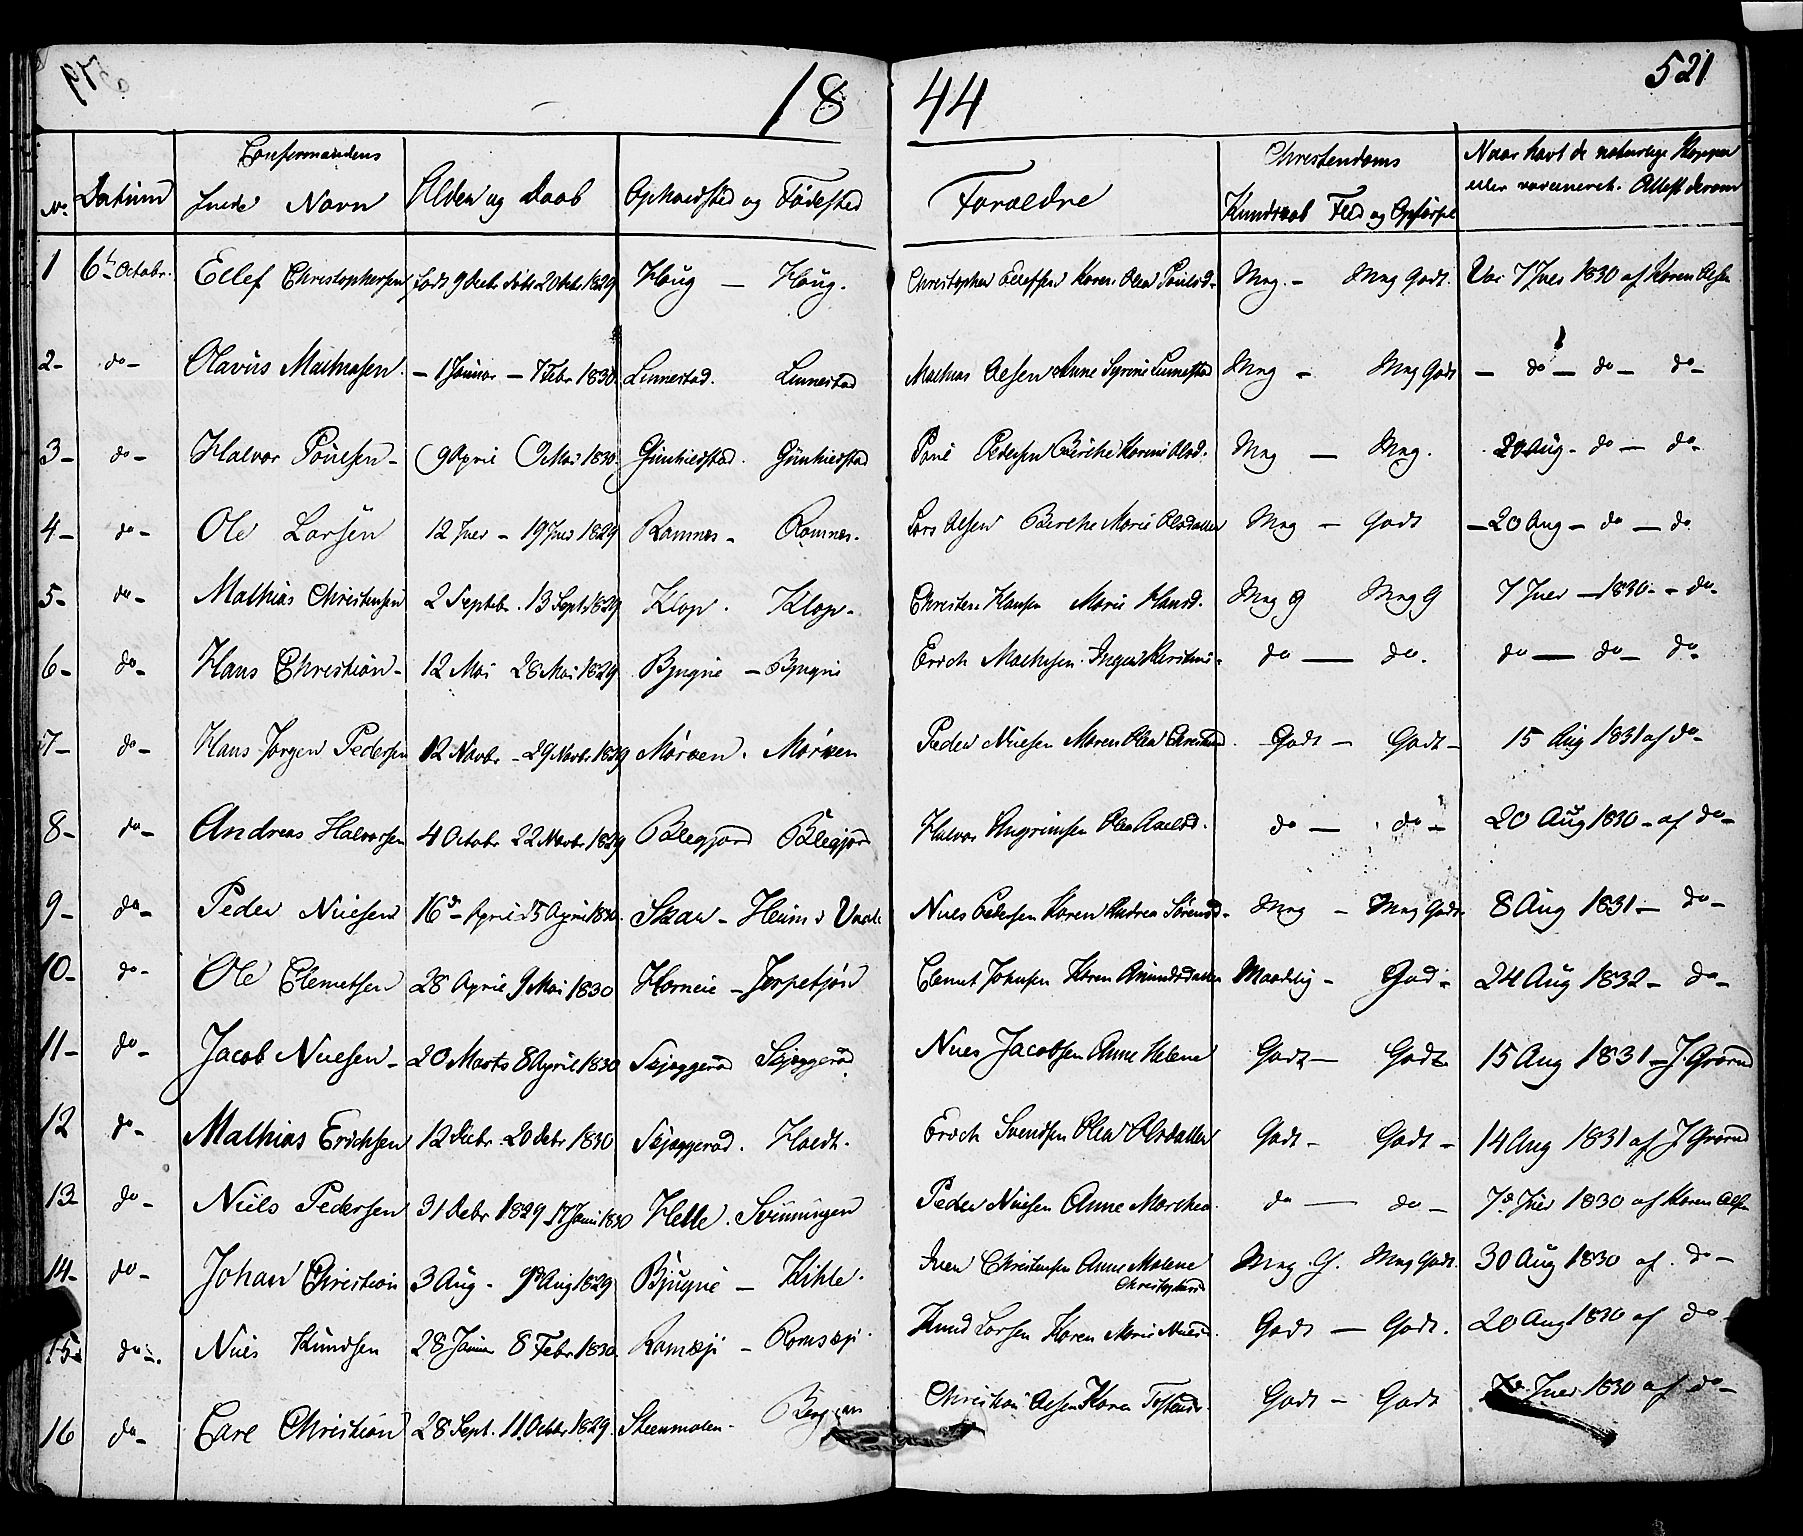 18 44 521
No Datum Confirmandens fulde Navn Alder og Daab Opholdsted og Fødested Forældre Christendoms Kundskab Flid og Opførsel Naar havt de naturlige Kopper eller vaccineret. Attest derom
1 6t Octobr. Ellef Christophersen født 9 døbt 20 1829 Haug — Haug. Christopher Ellefsen Karen Olea Poulsd. Mng. - Mng Godt. Vac 7 Juli 1830 af Karen Olsen
2- do- Olavus Mathiasen. - 1 Januar - 7 Febr 1830 Linnestad. Linnestad Mathias Olsen Anne Syrine Linnestad Mng - Mng Godt - do - do - do-
3- do- Halvor Poulsen- 9 April Mai 1830. Gunhildstad. Gunhildstad Poul Pedersen Berthe Karine Olsd. Mng — Mng. 20 Aug - do - do-
4- do- Ole Larsen 12 Juli - 19 Juli 1829 Ramnes - Ramnes. Lars Olsen Berthe Marie Olsdatter Mng - Godt - 20 Aug - do - do
5- do- Mathias Christensen 2 Septebr. 13 Sept. 1829 Klop. Klop. Christen Hansen Marie Hansd. Mng G Mng G 7 Juli - 1830 - - do-
6- do- Hans Christian- 12 Mai 28 Mai 1829 Bjugne - Bjugne Erich Mathisen. Inger Kirstine- do — do. do — do - do-
7- do- Hans Jørgen Pedersen 12 Novbr - 29 Novbr. 1829 Mørken. Mørken Peder Nielsen Maren Olea Christensd. Godt - Godt - 15 Aug 1831 af do-
8- do- Andreas Halvorsen 4 Octobr 22 Novbr 1829 Blegjord Blegjord Halvor Angrimsen Olea Axelsd. do — do - 20 Aug 1830 - af do-
9- do- Peder Nielsen 16d April 25 April 1830. Skau - Heim i Vaale Niels Pedersen Karen Andrea Sørensd- Mng - Mng Godt 8 Aug 1831 - do-
10- do- Ole Clemetsen 28 April 9 Mai 1830 - Jerpetjøn Clemet Johnsen Karen Amundsdatter Maadelig - God - 24 Aug 1832 - do-
11- do- Jacob Nielsen- 20 Marts 8 April 1830 Skjeggerød Skjeggerød Niels Jacobsen Anne Helene Godt - Godt 15 Aug 1831 - J. Grorud
12 do- Mathias Erichsen 12 20 1830 Skjeggerød. Haedt. Erich Svendsen Olea Olsdatter Godt - Godt - 14 Aug 1831 af J Grorud
13- do- Niels Pedersen 31 Debr 1829 17 Janu 1830 Helle. Svinningen Peder Nielsen Anne Marthea. do — do - 7d Juli 1830 af Karen Olsen
14- do- Johan Christian 3 Aug - 9d Aug 1829 Bjugne - Kihle. Iver Christensen Anne Malene Christophersd. Mng. G. Mng Godt. 30 Aug 1830 af. do-
15- do-. Niels Knudsen 28 Januar 8 Febr. 1830. Ramskji - Ramskji. Knud Larsen Karen Marie Nielsd. Godt - Godt. 20 Aug 1830 af do-
16 do- Carl Christian 28 Sept. 11 Octobr 1829. Steenmolen- Christian Olsen Karen Godt - Godt 7d. Juli 1830 af do-